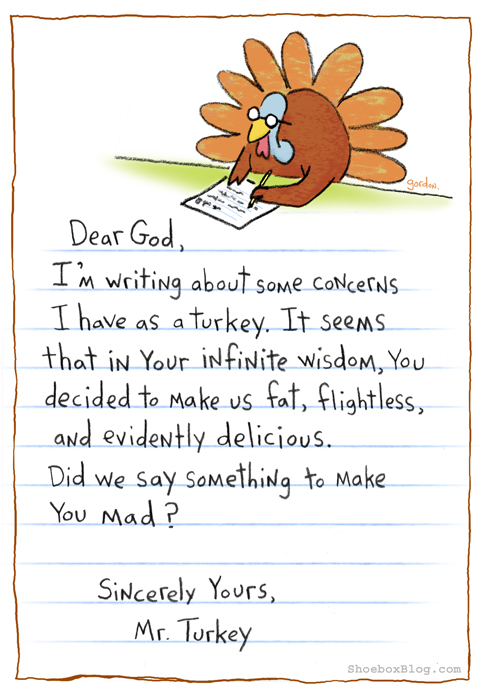 gordon.
Dear God,
I'm writing about some concerns
I have as a turkey. It seems
that in Your infinite wisdom, You
decided to make us fat, flightless,
and evidently delicious.
Did we say something to make
You mad?
Sincerely Yours,
Mr. Turkey
ShoeboxBlog.com